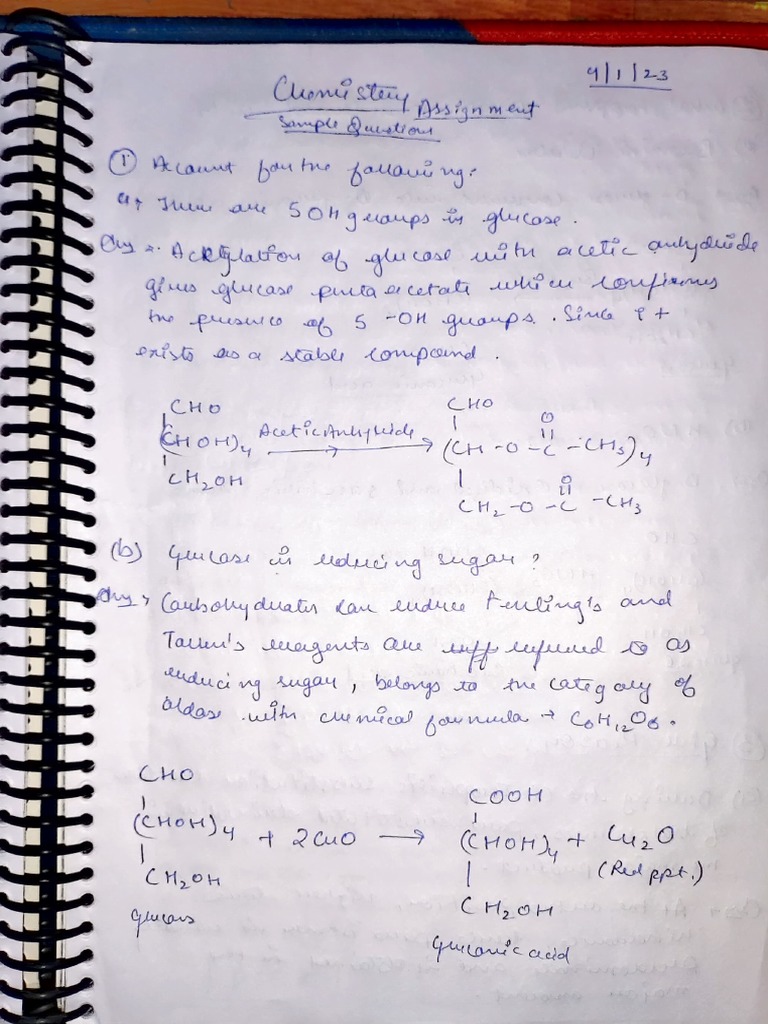 9/1/23
Chemistry Assignment
Sample Questions
① Account for the following:
a, There are 5 OH groups in glucose.
Ans → Acetylation of glucose with acetic anhydride
gives glucose penta acetate which confirms
the presence of 5 -OH groups. Since it
exists as a stable compound.
CHO CHO O
(CHOH)4 Acetic Anhydride → (CH -O -C -CH3)4
CH2OH O
CH2 -O -C -CH3
(b) Glucose is reducing sugar?
Ans → Carbohydrates can reduce Fehling's and
reagents are referred to as
reducing sugar, belongs to the category of
aldose with chemical formula → C6H12O6.
CHO COOH
(CHOH)4 + 2CuO → (CHOH)4 + Cu2O
CH2OH (Red ppt.)
CH2OH
glucose
gluconic acid